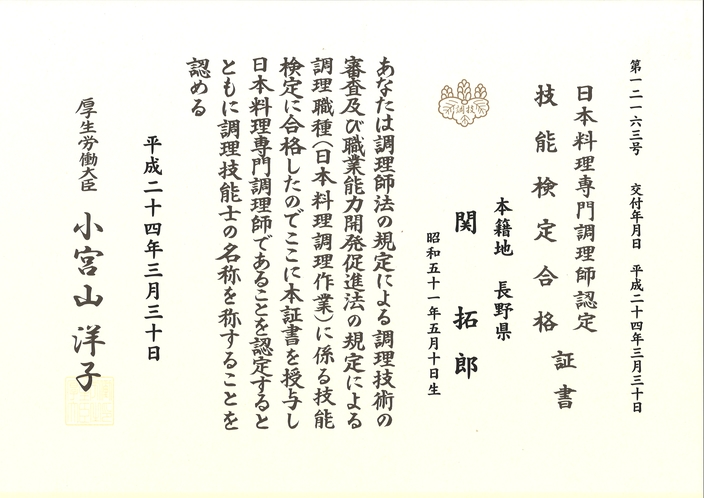 第一二一六三号　交付年月日　平成二十四年三月三十日
日本料理専門調理師認定
技能検定合格
証書
本籍地　長野県
関　拓郎
昭和五十一年五月十日生
あなたは調理師法の規定による調理技術の
審査及び職業能力開発促進法の規定による
調理職種（日本料理調理作業）に係る技能
検定に合格したのでここに本証書を授与し
日本料理専門調理師であることを認定すると
ともに調理技能士の名称を称することを
認める
平成二十四年三月三十日
厚生労働大臣　小宮山洋子